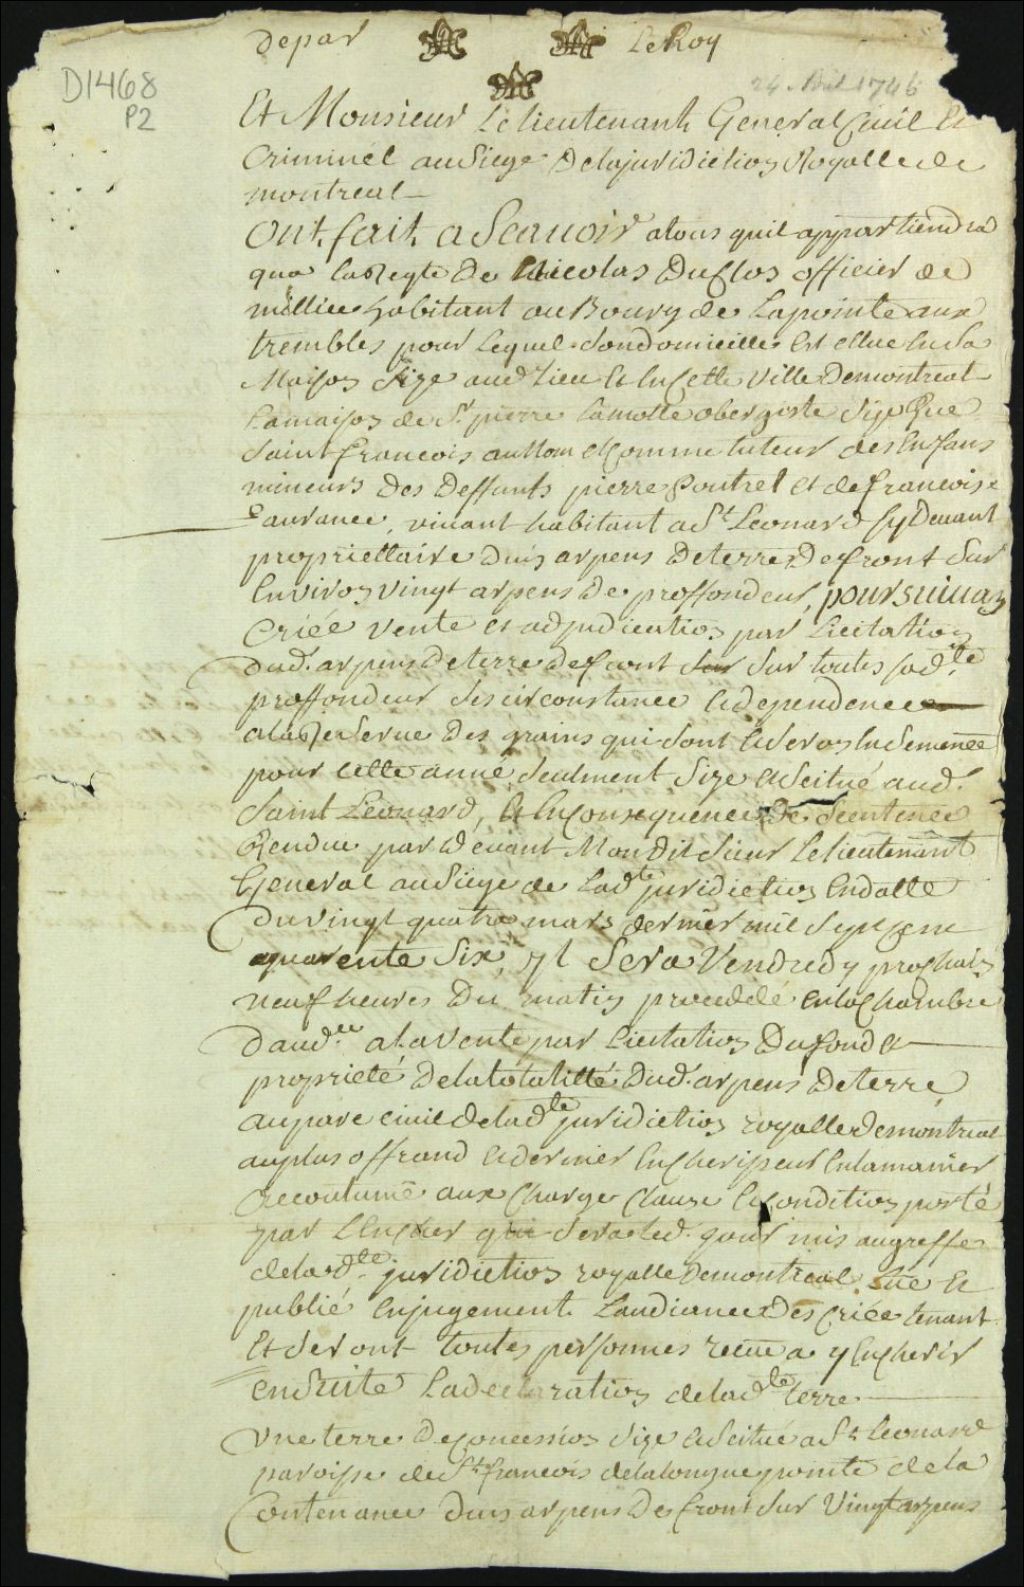 depar Le Roy
D1468
P2
24. Avril 1746
Et Monsieur Le lieutenant General Ciuil Et
Criminel au Siege Delajuridiction Royalle de
montreal
Ont fait a Scauoir atous quil appartiendra
qua la Reqte De Nicolas Duclos officier de
millice habitant au Bourg de Lapointe aux
trembles pour Lequel Son domicille Est ellue En Sa
Maison Size aud. Lieu Et En Cette Ville Demontreal
Lamaison de Sr. pierre Lamotte obergiste Size Rue
Saint francois au Nom Et Comme tuteur des Enfans
mineurs Des Deffunts pierre Poutret Et de francoise
Vauranee, viuant habitant a St. Leonard Cy Deuant
propriettaire Dun arpens De terre De front Sur
Enviros vingt arpens De proffondeur, poursuiuan
Criée Vente et adjudication par Licitation
dud. arpens De terre de front Sur toutes Sad.te
proffondeur Ses circonstance Et dependence
ala Reserue Des grains qui Sont Et Seron En Semencé
pour Cette anné Seulment Size Et Scitué aud.
Saint Leonard, Et En Consequence De Scentence
Rendue par Deuant Mondit Sieur Le lieutenant
General au Siege de Lad.te juridiction En datte
Du vingt quatre mars dernier mil Sept Cent
quarente Six, yl Sera Vendredy prochain
neuf heures Du matin proceddé En la Chambre
Daud.ce ala vente par Licitation Du fond Et
propriété De la totalitté Dud. arpens De terre
au parc ciuil De lad.te juridiction royalle Demontreal
au plus offrand Et dernier Encherisseur En la manier
Accoutumé aux Charge Clause Et Condition porté
par LEncher qui Sera Led. jour mis au greffe
de lad.te juridiction royalle Demontreal Lüe Et
publié En jugement Laudiance Des Criée tenant
Et Seront toutes personnes recüe a y Encherir
En Suite La declaration de lad.te terre
Une terre De Concession Size Et Scitué a St. Leonard
paroisse de St. francois de la longue pointe de la
Contenance Dun arpens De front Sur Vingt arpens